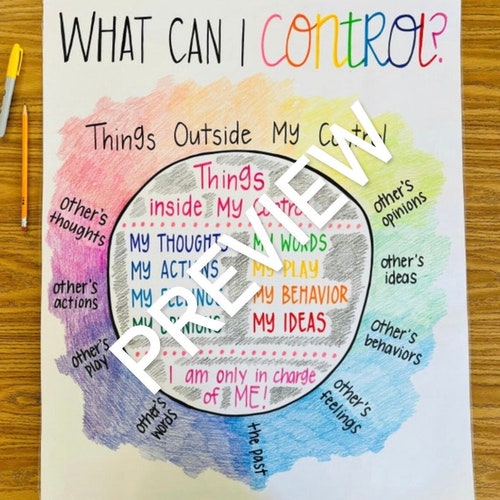 WHAT CAN I CONTROL?
Things Outside My Control
Things
inside My Control
MY THOUGHTS MY WORDS
MY ACTIONS MY PLAY
MY FEELINGS MY BEHAVIOR
MY OPINIONS MY IDEAS
I am only in charge
of ME!
other's
thoughts
other's
actions
other's
play
other's
words
the past
other's
feelings
other's
behaviors
other's
ideas
other's
opinions
PREVIEW